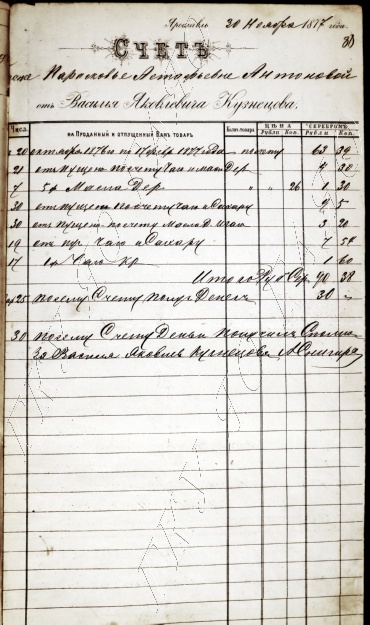 Ярославль 30 Ноября 1877 года
СЧЕТЪ
Парасковье Астафьевне Антоновой
отъ Василія Яковлевича Кузнецова.
Число. НА ПРОДАННЫЙ И ОТПУЩЕННЫЙ ВАМЪ ТОВАРЪ ЦѢНА Рубли Коп. СЕРЕБРОМЪ Рубли Коп.
20 октября 1876 по 17 февр 1877 года по счету 63 39
21 отпущено по счету Чаю и масл Дер
7 5 ф Масла Дер " " 26 1 30
30 отпущено по счету Чаю и Сахару 9 5
30 отъ пущено по счету Масл Д 3 20
19 от пу Чаю и Сахару 7 54
17 1 60
Итого Руб Сер 90 38
25 по сему Счету получ Денег 30 "
30 по сему Счету Деньги Получил Сполна
За Василья Яковлев Кузнецова